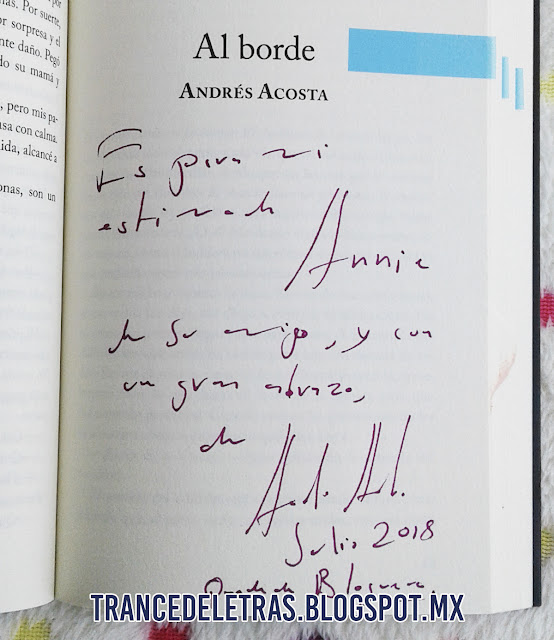 por
nas. Por suerte,
or sorpresa y el
nte daño. Pegó
do su mamá y
, pero mis pa-
usa con calma.
ida, alcancé a
onas, son un
Al borde
ANDRÉS ACOSTA
Es para mi
estimada
Annie
de su amigo, y con
un gran abrazo,
de
Julio 2018
TRANCEDELETRAS.BLOGSPOT.MX